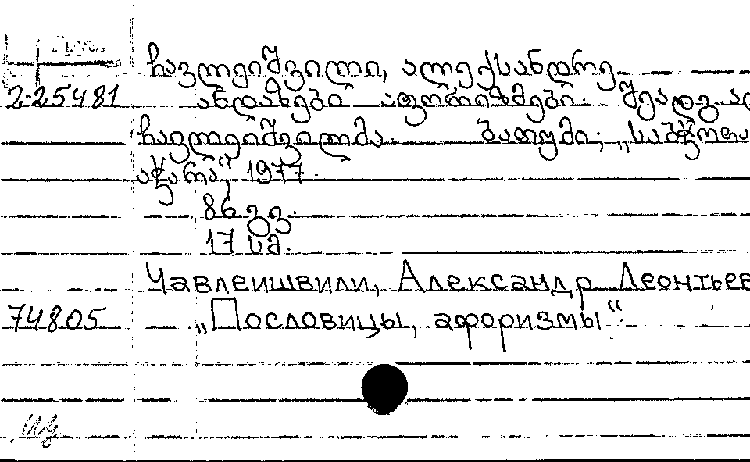 ჩავლეიშვილი, ალექსანდრე
2-25481 ანდაზები აფორიზმები. შეადგ. ალ
ჩავლეიშვილმა. ბათუმი, „საბჭოთა
აჭარა“, 1977.
86 გვ.
17 სმ.
Чавлеишвили, Александр Леонтьев
74805 „Пословицы, афоризмы“.